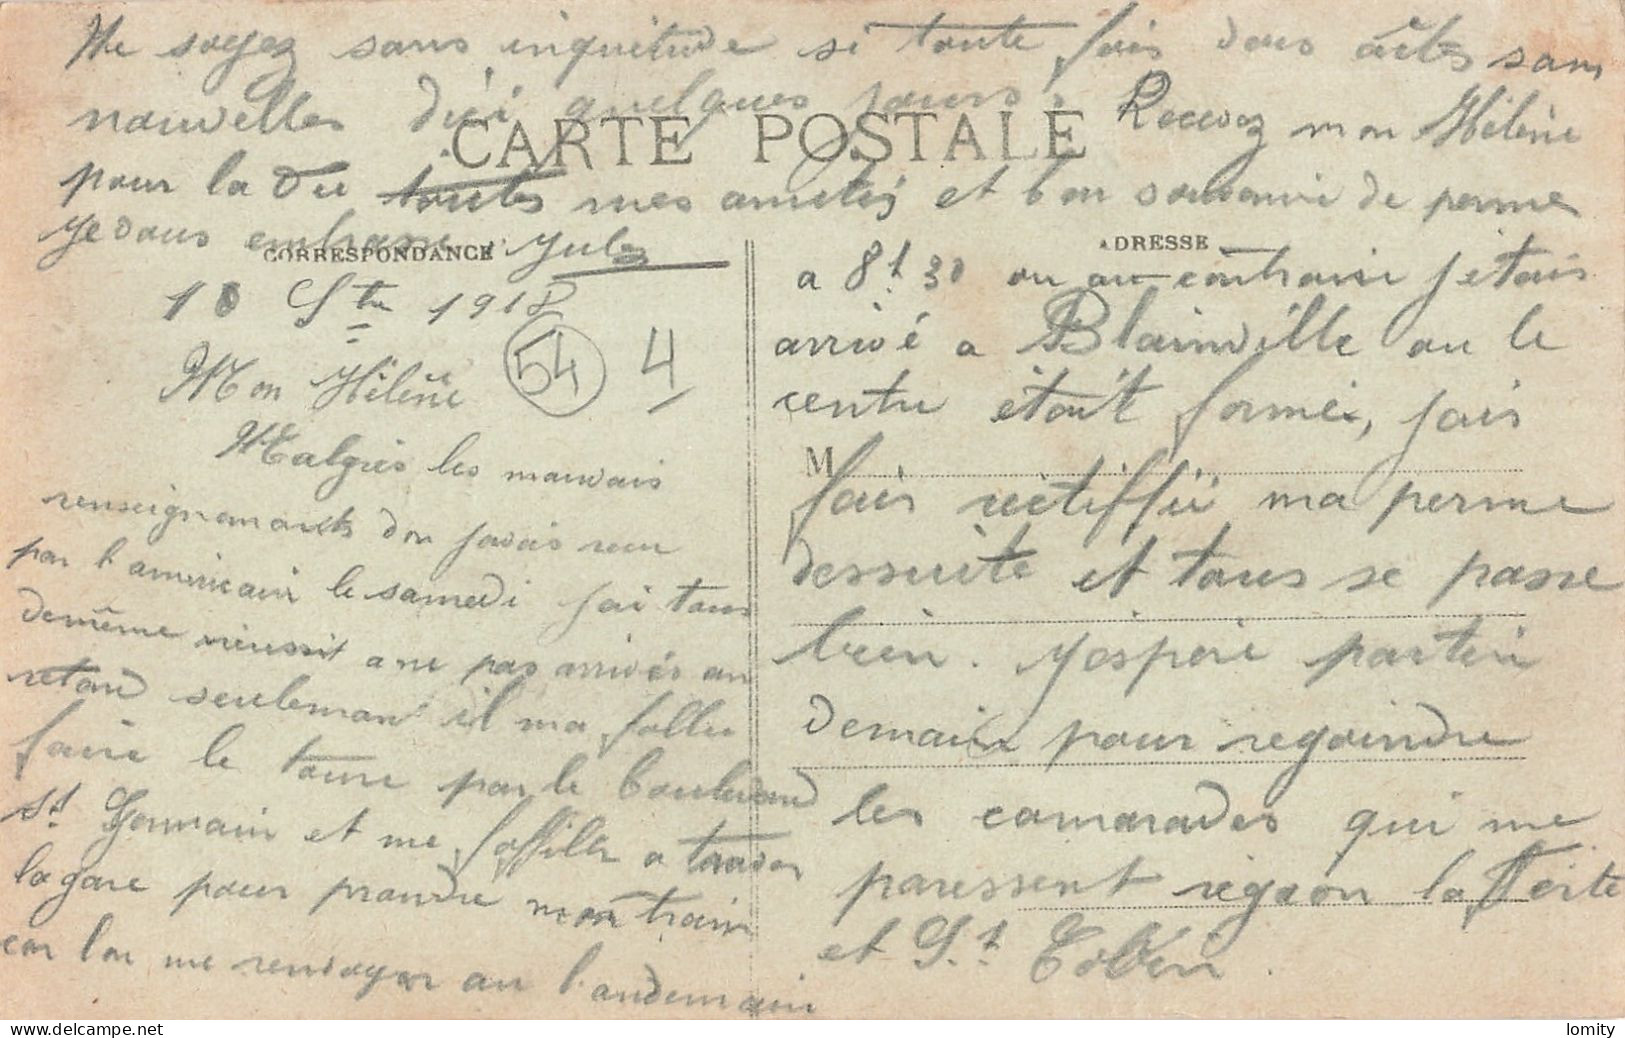 10 Stre 1918
Mon Hélène
Malgrès les mauvais
renseignements don javais recu
par l'américain le samedi jai tous
demême réussit a ne pas arrivés au
retard seuleman il ma faller
faire le toure par le boulevard
St Germain et me foffiller a traver
la gare pour prandre mon train
car lon me renvoyer au landemain
a 8h 30 ou au contraire jetais
arrivé a Blainville ou le
centre étaît formé, jais
fais rectiffié ma perme
dessuite et tous se passe
bien. J'espère partir
demain pour rejoindre
les camarades qui me
paressent région la
et St
Ne soyez sans inquiétude si toute fois vous êtes sans
nouvelles d'ici quelques jours. Recevoz mon Hélène
pour la vie toutes mes amités et bon souvenir de perme
Je vous embrasse Jules
CARTE POSTALE
CORRESPONDANCE
ADRESSE
M
54
4
lomity